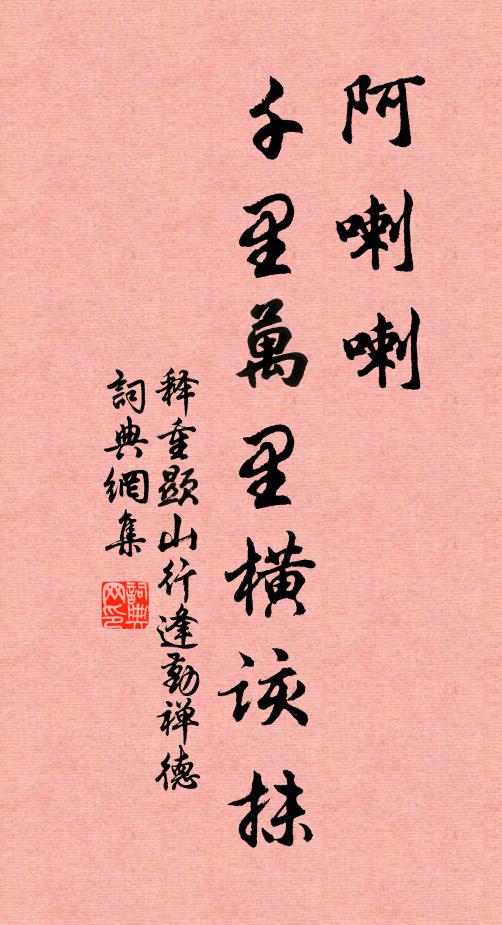 阿喇喇
千里萬里橫該抹
释重顯山行逢勤禅德
詞典網集
詞典网印